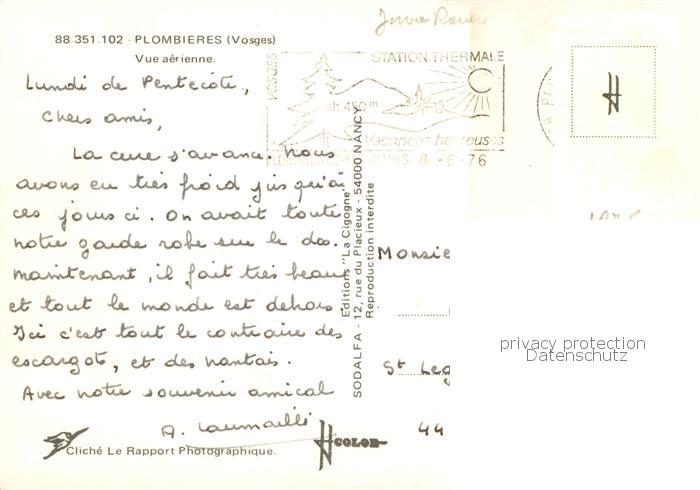 88.351.102 - PLOMBIERES (Vosges)
Vue aérienne.
Lundi de Pentecôte,
Chers amis,
La cure s'avance. Nous
avons eu très froid jusqu'à
ces jours ci. On avait toute
notre garde robe sur le dos.
maintenant, il fait très beau
et tout le monde est dehors
Ici c'est tout le contraire des
escargots, et des nantais.
Avec notre souvenir amical
A.
Cliché Le Rapport Photographique.
COLOR
SODALFA - 12, rue du Placieux - 54000 NANCY
Editions "La Cigogne"
Reproduction interdite
VOSGES
STATION THERMALE
alt. 450 m
Vacances heureuses
PLOMBIERES-LES-BAINS 8-6-76
Monsie
St Leg
44
privacy protection
Datenschutz